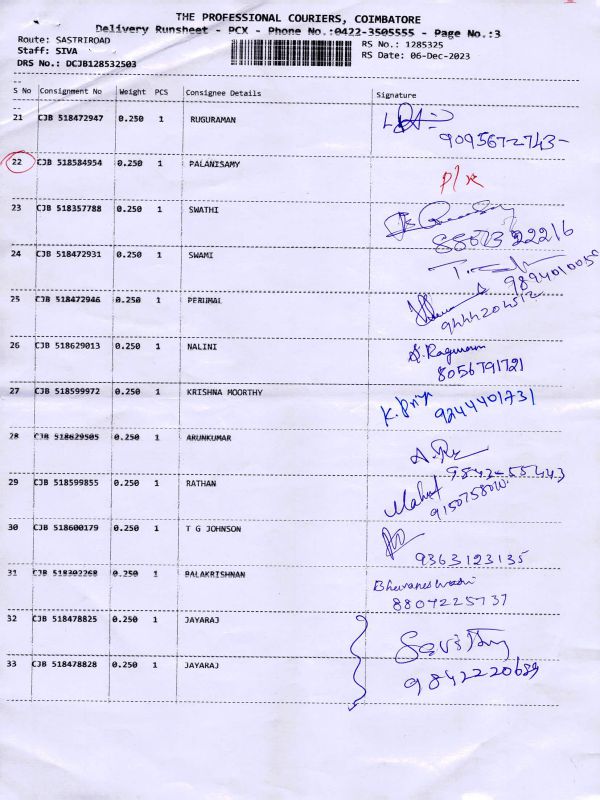 THE PROFESSIONAL COURIERS, COIMBATORE
Delivery Runsheet - PCX - Phone No.:0422-3505555 - Page No.:3
Route: SASTRIROAD RS No.: 1285325
Staff: SIVA RS Date: 06-Dec-2023
DRS No.: DCJB128532503
S No Consignment No Weight PCS Consignee Details Signature
21 CJB 518472947 0.250 1 RUGURAMAN
9095672743
22 CJB 518584954 0.250 1 PALANISAMY
23 CJB 518357788 0.250 1 SWATHI
8807322216
24 CJB 518472931 0.250 1 SWAMI
9894010050
25 CJB 518472946 0.250 1 PERUMAL
9444204512
26 CJB 518629013 0.250 1 NALINI
8056791721
27 CJB 518599972 0.250 1 KRISHNA MOORTHY K. Priya
9244401731
28 CJB 518629505 0.250 1 ARUNKUMAR
9842455443
29 CJB 518599855 0.250 1 RATHAN
9150758010
30 CJB 518600179 1 T G JOHNSON
9363123135
31 CJB 518302268 0.250 1 BALAKRISHNAN
8807225737
32 CJB 518478825 0.250 1 JAYARAJ
33 CJB 518478828 0.250 1 JAYARAJ
9842220689